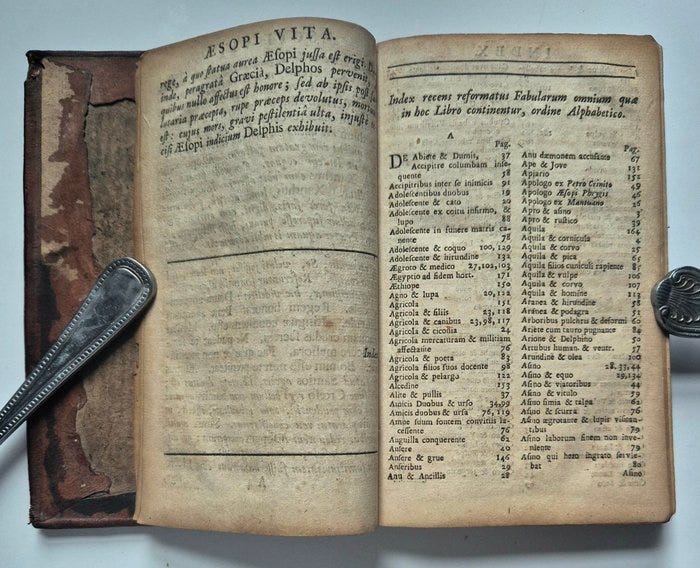 ÆSOPI VITA.
rege, à quo ſtatua aurea Æſopi juſſa eſt erigi.
inde, peragratâ Græciâ, Delphos pervenit,
quibus nullo affectus eſt honore; ſed ab ipſis poſt
laxaria præcepta, rupe præceps devolutus, mor-
eſt: cujus mors, gravi peſtilentiâ ulta, injuſtè
ciſi Æſopi indicium Delphis exhibuit.
Index
INDEX
Index recens reformatus Fabularum omnium quæ
in hoc Libro continentur, ordine Alphabetico.
A
Pag.
DE Abiete & Dumis, 37
Accipitre columbam inſe-
quente 58
Accipitribus inter ſe inimicis 91
Adoleſcentibus duobus 19
Adoleſcente & cato 20
Adoleſcente ex coitu infirmo, &
lupo 88
Adoleſcente in funere matris ca-
nente 78
Adoleſcente & coquo 100, 129
Adoleſcente & hirundine 132
Ægroto & medico 27, 102, 103
Ægyptio ad fidem hort. 171
Æthiope 150
Agno & lupa 20, 122
Agricola 151
Agricola & filiis 23, 118
Agricola & canibus 23, 98, 117
Agricola & ciconia 24
Agricola mercaturam & militiam
affectante 76
Agricola & poeta 83
Agricola filios ſuos docente 98
Agricola & pelarga 122
Alcedine 153
Alite & pullis 37
Amicis Duobus & urſo 34, 99
Amicis duobus & urſa 76, 119
Amne ſuum fontem convitiis la-
ceſſente 76
Anguilla conquerente 62
Anſere 40
Anſere & grue 146
Anſeribus 29
Anu & Ancillis 28
Pag.
Anu dæmonem accuſante 67
Ape & Jove 131
Apiario 152
Apologo ex Petro Crinito 49
Apologo Æſopi Phrygis 46
Apologo ex Mantuano 26
Apro & aſino 3
Apro & ruſtico 39
Aquila 164
Aquila & cornicula 4
Aquila & corvo 25
Aquila & pica 65
Aquila filios cuniculi rapiente 85
Aquila & vulpe 106
Aquila & corvo 107
Aquila & homine 113
Aranea & hirundine 58
Aranea & podagra 51
Arboribus pulchris & deformi 60
Ariete cum tauro pugnante 84
Arione & Delphino 50
Artubus human. & ventr. 57
Arundine & olea 100
Aſino 28, 33, 44
Aſino & equo 29, 134
Aſino & viatoribus 44
Aſino & vitulo 59
Aſino ſimia & talpa 62
Aſino & ſcurra 76
Aſino ægrotante & lupis viſitan-
tibus 79
Aſino laborum finem non inve-
niente 79
Aſino qui hero ingrato ſervie-
bat 80
Aſino